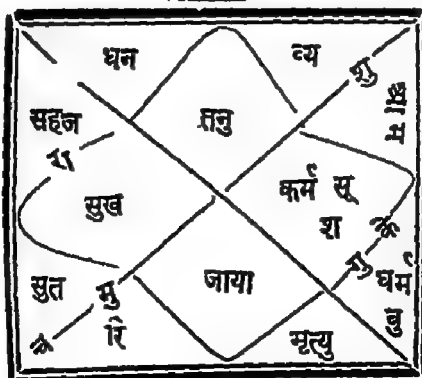 धन
व्य
शु
सहज
तनु
रा
सुख
कर्म सू
श
सुत
मु
जाया
धर्म
बु
रि
मृत्यु